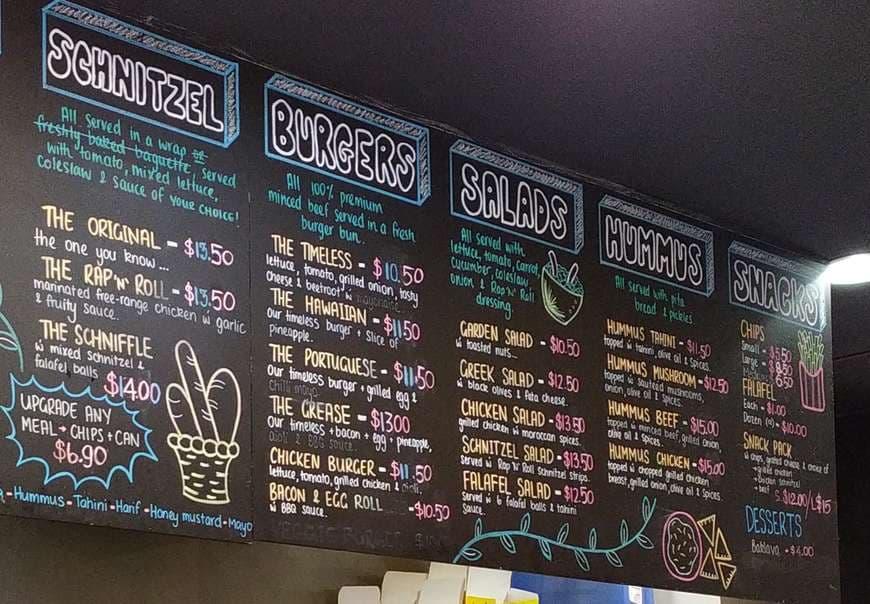 SCHNITZEL
All served in a wrap or
freshly baked baguette, served
with tomato, mixed lettuce,
coleslaw & sauce of your CHOICE!
THE ORIGINAL - $13.50
the one you know...
THE RAP'N'ROLL - $13.50
marinated free-range chicken w garlic
& fruity sauce.
THE SCHNIFFLE
w mixed schnitzel &
falafel balls $14.00
UPGRADE ANY
MEAL → CHIPS + CAN
$6.90
- Hummus - Tahini - Harif - Honey mustard - Mayo
BURGERS
All 100% premium
minced beef served in a fresh
burger bun.
THE TIMELESS - $10.50
lettuce, tomato, grilled onion, tasty
cheese & beetroot w mayonnaise
THE HAWAIIAN - $11.50
Our timeless burger + slice of
pineapple.
THE PORTUGUESE - $11.50
Our timeless burger + grilled egg &
chilli mayo
THE GREASE - $1300
Our timeless + bacon + egg + pineapple,
aioli & BBQ sauce.
CHICKEN BURGER - $11.50
lettuce, tomato, grilled chicken & aioli.
BACON & EGG ROLL - $10.50
w BBQ sauce.
VEGGIE BURGER
SALADS
All served with
lettuce, tomato, carrot,
cucumber, coleslaw,
onion & Rap'N' Roll
dressing.
GARDEN SALAD - $10.50
w toasted nuts...
GREEK SALAD - $12.50
w black olives & feta cheese.
CHICKEN SALAD - $13.50
grilled chicken w moroccan spices.
SCHNITZEL SALAD - $13.50
Served w Rap'N' Roll Schnitzel strips.
FALAFEL SALAD - $12.50
Served w 6 falafel balls & tahini
sauce.
HUMMUS
All served with pita
bread & pickles
HUMMUS TAHINI - $11.50
topped w tahini, olive oil & spices.
HUMMUS MUSHROOM - $12.50
topped w sauteed mushrooms,
onion, olive oil & spices.
HUMMUS BEEF - $15.00
topped w minced beef, grilled onion,
olive oil & spices.
HUMMUS CHICKEN - $15.00
topped w chopped grilled chicken
breast, grilled onion, olive oil & spices.
SNACKS
CHIPS
Small - $5.50
Large -
FALAFEL
Each - $1.00
Dozen (12) - $10.00
SNACK PACK
w chips, grated cheese & choice of
→ grilled chicken
→ chicken schnitzel
→ beef
S $12.00/L $15
DESSERTS
Baklava - $4.00